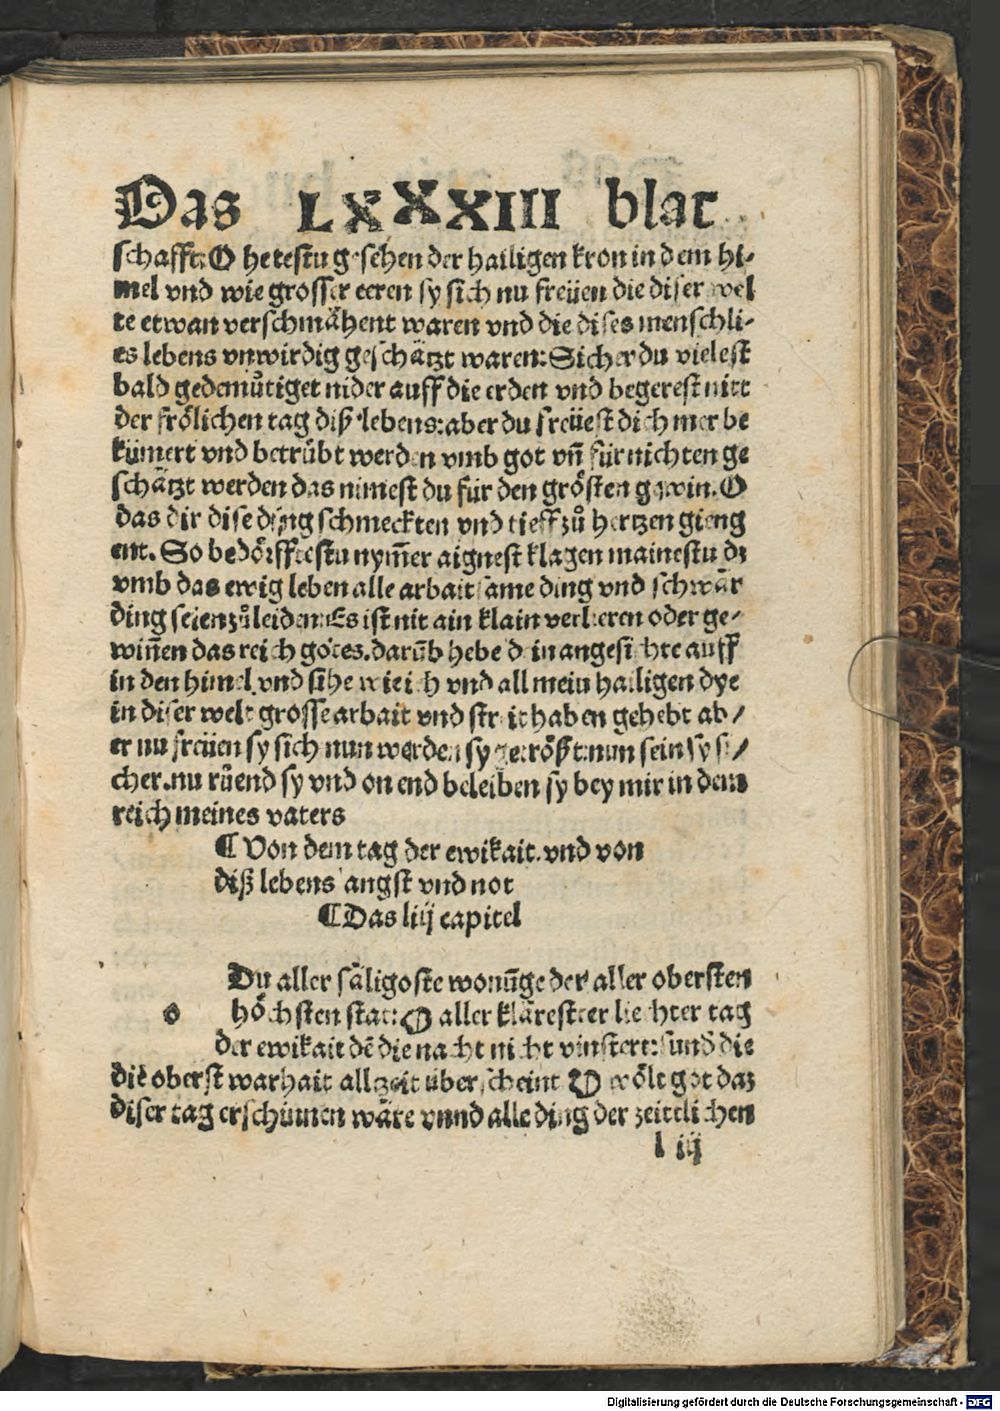 Das LXXXIII blat
schafft:O hetestu gesehen der hailigen kron in dem hi-
mel vnd wie grosser eeren sy sich nu freüen die diser wel
te etwan verschmähent waren vnd die dises menschli-
es lebens vnwirdig geschätzt waren:Sicher du vielest
bald gedemuͤtiget nider auff die erden vnd begerest nitt
der frölichen tag diß lebens:aber du freüest dich mer be
kümert vnd betrübt werden vmb got vn̄ für nichten ge
schätzt werden das nimest du für den grösten gewin.O
das dir dise ding schmeckten vnd tieff zuͦ hertzen gieng
ent. So bedörfftestu nym̄er aignest klagen mainestu dz
vmb das ewig leben alle arbaitsame ding vnd schwär
ding seien zuͦ leiden:Es ist nit ain klain verlieren oder ge-
win̄en das reich gotes.darūb hebe dein angesichte auff
in den himel vnd sihe wie ich vnd all mein hailigen dye
in diser welt grosse arbait vnd streit haben gehebt ab/
er nu freüen sy sich nun werden sy getröst:nun sein sy si/
cher.nu ruͤend sy vnd on end beleiben sy bey mir in dem
reich meines vaters
¶ Von dem tag der ewikait.vnd von
diß lebens angst vnd not
¶ Das liij capitel
Du aller säligoste wonūge der aller obersten
o höchsten stat:O aller kläresteer liechter tag
der ewikait dē die nacht nicht vinstert:sund̄ die
die oberst warhait allzeit über scheint O wölt got daz
diser tag erschinnen wäre vnnd alle ding der zeittlichen
l iij
Digitalisierung gefördert durch die Deutsche Forschungsgemeinschaft - DFG